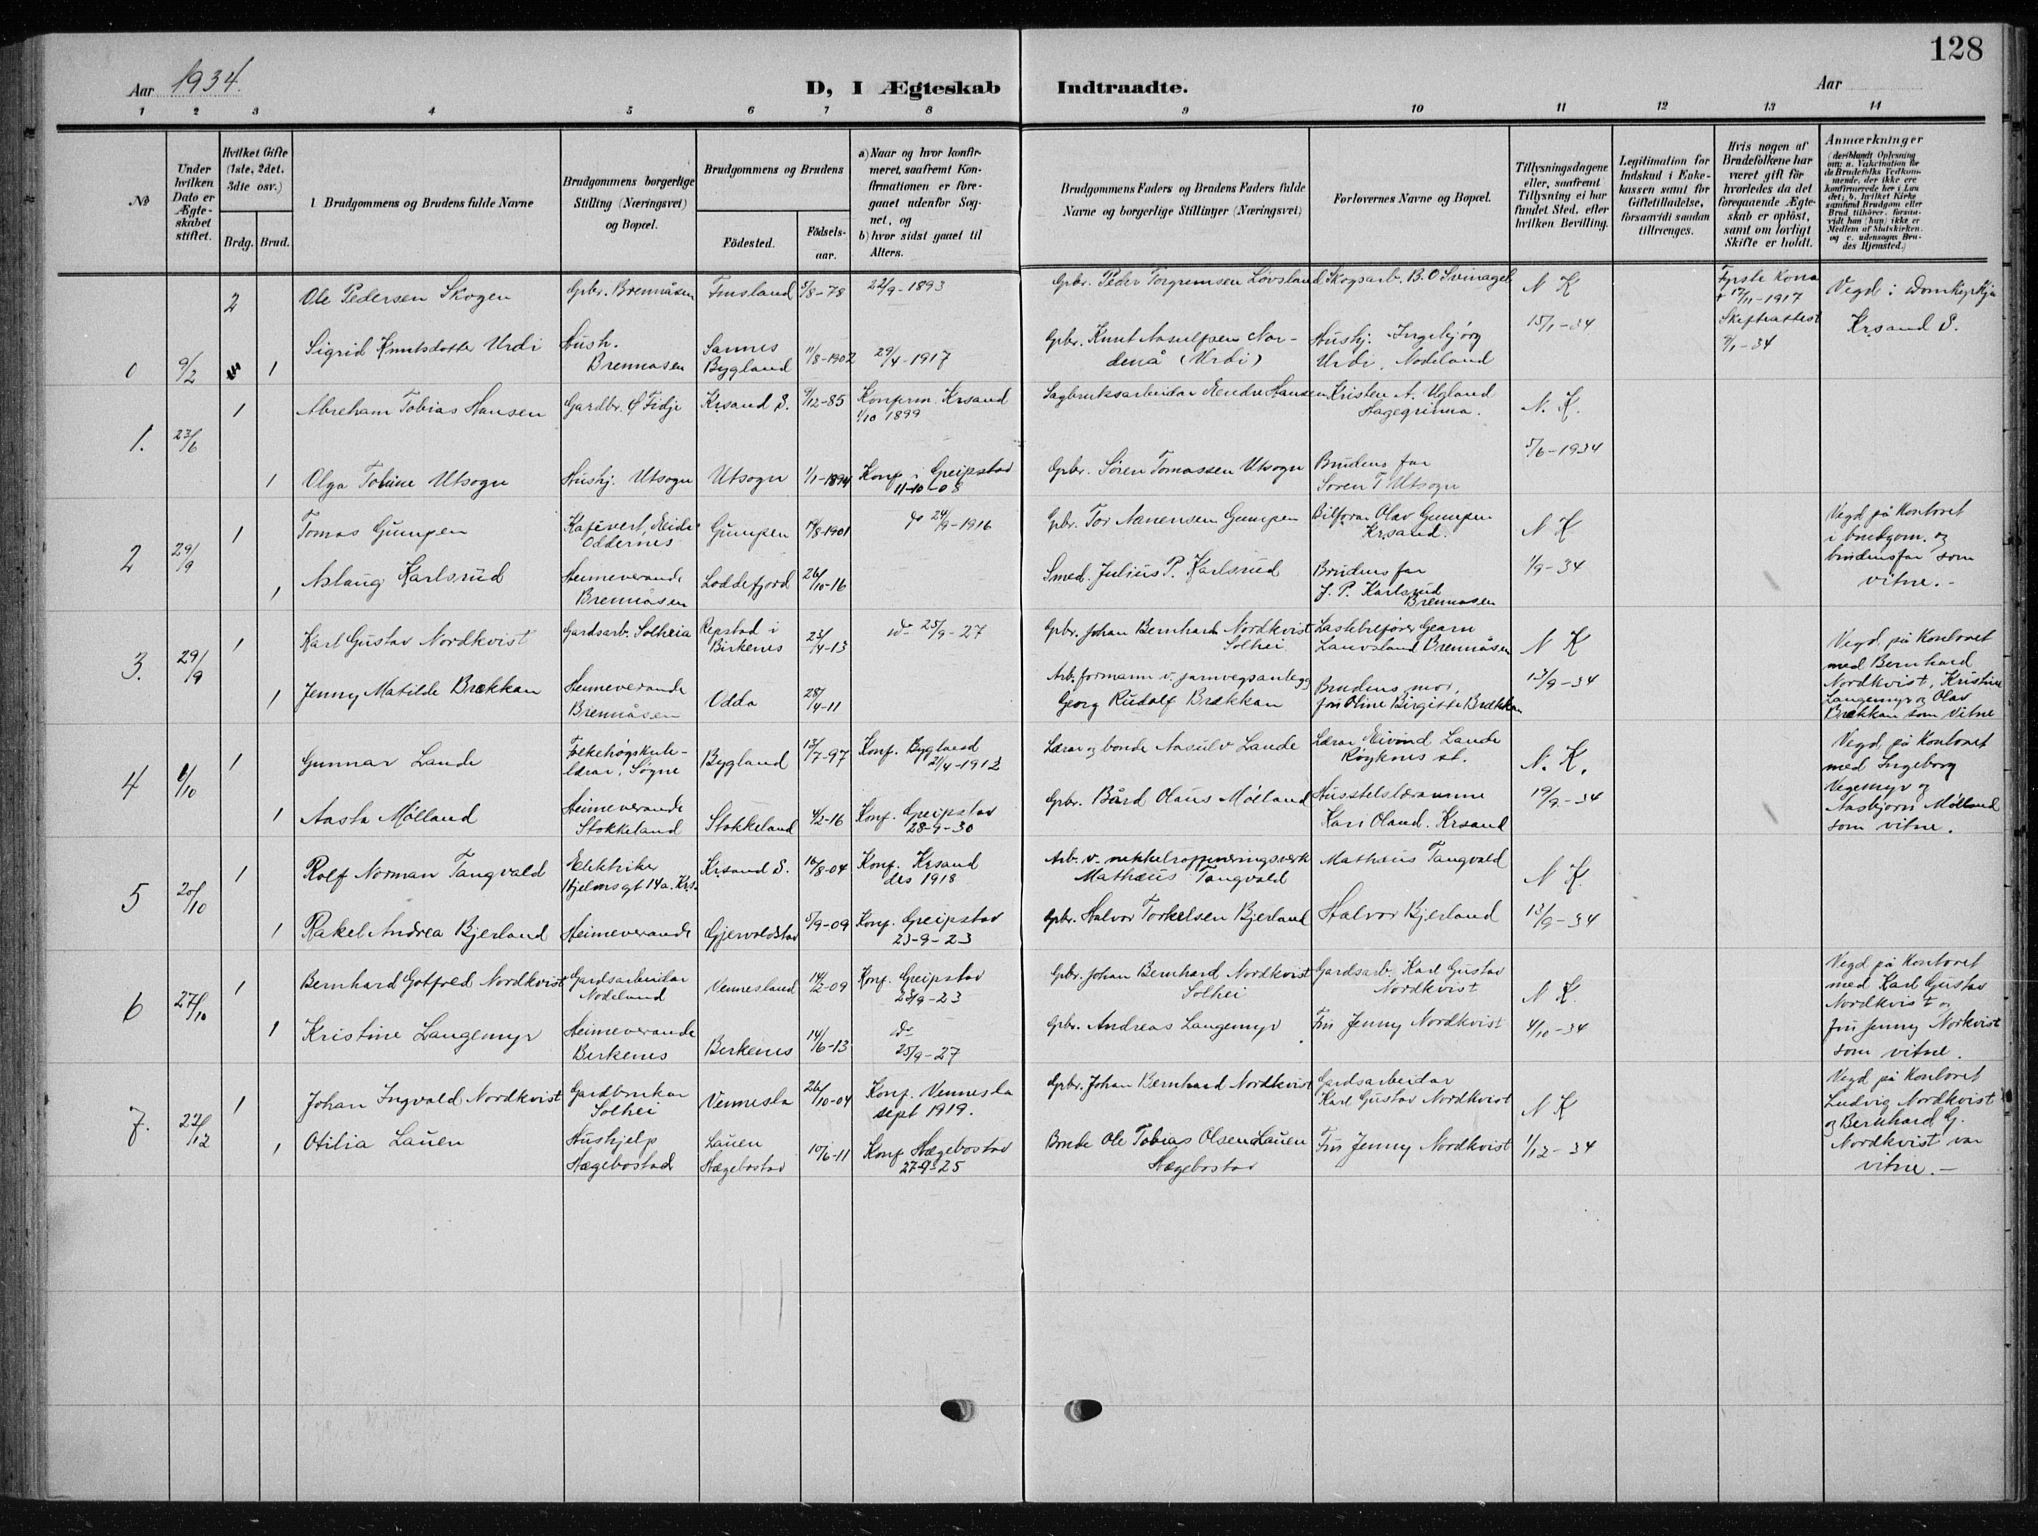 128
Aar 1934.
D, I Ægteskab Indtraadte.
Aar
1 2 3 4 5 6 7 8 9 10 11 12 13 14
No
Under hvilken Dato er Ægteskabet stiftet.
Hvilket Gifte (1ste, 2det, 3dte osv.)
Brdg. Brud.
1 Brudgommens og Brudens fulde Navne
Brudgommens borgerlige Stilling (Næringsvei) og Bopæl.
Brudgommens og Brudens
Födested.
Födselsaar.
a) Naar og hvor konfirmeret, saafremt Konfirmationen er foregaaet udenfor Sognet, og
b) hvor sidst gaaet til Alters.
Brudgommens Faders og Brudens Faders fulde Navne og borgerlige Stillinger (Næringsvei)
Forlovernes Navne og Bopæl.
Tillysningsdagene eller, saafremt Tillysning ei har fundet Sted, efter hvilken Bevilling.
Legitimation for Indskud i Enkekassen samt for Giftetilladelse, forsaavidt saadan tiltrænges.
Hvis nogen af Brudefolkene har været gift för hvorledes da det foregaaende Ægteskab er oplöst, samt om lovligt Skifte er holdt.
Anmærkninger
(deriblandt Oplysning om: a. Vakcination for de Brudefolks Vedkommende, der ikke ere konfirmerede her i Landet; b. hvilket Kirkesamfund Brudgom eller Brud tilhörer, forsaavidt han (hun) ikke er Medlem af Statskirken, og c. udensogns Brudes Hjemsted.)
0 9/2 2 Ole Pedersen Skogen Gbr. Brennåsen Finsland 5/8-78 22/9-1893 Gbr. Peder Torgremsen Løvsland Skogsarb. B.O Svinagel N K Fyrste kona + 17/11-1917 Vegd i Domkyrkja
1 Sigrid Knutsdotter Urdi Hush. Brennåsen Sannes Bygland 11/8-1902 29/4-1917 Gbr. Knut Aasulfsen Nordenå (Urdi) Hushj. Ingebjörg Urdi, Nodeland 15/1-34 Skifteattest 9/1-34 Krsand S.
1. 23/6 1 Abreham Tobias Hansen Gardbr. Ø Fidje Krsand S. 9/12-85 Konfirm. Krsand 1/10 1899 Sagbruksarbeidar Eendre Hansen Kristen A. Ugland Hagegrinna. N. K.
1 Olga Tobine Utsogn Hushj. Utsogn Utsogn 1/1-1894 Konf. i Greipstad 11-10-08 Gbr. Sören Tomassen Utsogn Brudens far Soren T Utsogn 5/6-1934
2 29/9 1 Tomas Gumpen Kafévert, Eide Oddernes Gumpen 19/8-1901 do 24/9-1916 Gbr. Tor Nanensen Gumpen Bilforar Olav Gumpen Krsand. N K Vegd på kontoret i brudgom. og
1 Aslaug Karlsrud Heimeverande Brennåsen Loddefjord 26/10-16 Smed. Julius P. Karlsrud Brudens far J. P. Karlsrud Brennåsen 1/9-34 brudensfar som vitne.-
3. 29/9 1 Karl Gustav Nordkvist Gardsarb. Solheia Repstad i Birkenes 23/4-13 do 25/9-27 Gbr. Johan Bernhard Nordkvist Solhei Lastebilförer Gearn Lauvsland Brennåsen N K Vegd på kontoret med Bernhard
1 Jenny Matilde Brækkan Heimeverande Brennåsen Odda 28/4-11 Arb. formann v jarnvegsanlegg Georg Rudolf Brækkan Brudens mor, fru Oline Birgitte Brækkan 13/9-34 Nordkvist, Kristine Langemyr og Olav Brækkan som Vitne
4 6/10 1 Gunnar Lande Folkehøgskule-lærar. Søgne Bygland 13/7-97 Konf. Bygland 21/4-1912 Lærar og bonde Aasulv Lande Lærar Eivind Lande Röyknes st. N. K. Vegd på kontoret med Ingeborg
1 Aasta Mølland Heimeverande Stokkeland Stokkeland 4/2-16 Konf. Greipstad 28-9-30 Gbr. Bård Olaus Mølland Husstelslærarinne Kari Oland. Krsand 19/9-34 Vegemyr og Aasbjørn Mølland som vitne.
5 20/10 1 Rolf Norman Tangvald Elektriker Hjelmsgt 14a. Krs. Krsand S. 16/8-04 Konf. Krsand des 1918 Arb. v. nikkelraffineringsverk Mathæus Tangvald Mathæus Tangvald N K.
1 Rakel Andrea Bjerland Heimeverande Gjervoldstad 5/9-09 Konf. Greipstad 23-9-23 Gbr. Halvor Torkelsen Bjerland Halvor Bjerland 13/9-34
6 27/10 1 Bernhard Gotfred Nordkvist Gardsarbeidar Nodeland Vennesland 14/2-09 Konf. Greipstad 23/9-23 Gbr. Johan Bernhard Nordkvist Solhei Gardsarb. Karl Gustav Nordkvist N K. Vegd på kontoret med Karl Gustav Nordkvist og
1 Kristine Langemyr Heimeverande Birkenes Birkenes 14/6-13 do 25/9-27 Gbr. Andreas Langemyr Fru Jenny Nordkvist 4/10-34 fru Jenny Norkvist som vitne.
7. 22/12 1 Johan Ingvald Nordkvist Gardbrukar Solhei Vennesla 26/10-04 Konf. Vennesla sept 1919. Gbr. Johan Bernhard Nordkvist Gardsarbeidar Karl Gustav Nordkvist N K Vegd på kontoret Ludvig Nordkvist og Bernhard G.
1 Otilia Lauen Hushjelp Hægebostad Lauen Hægebostad 10/6-11 Konf Hægebostad 27-9-25 Bonde Ole Tobias Olsen Lauen Hægebostad Fru Jenny Nordkvist 1/12-34 Nordkvist var vitne.-